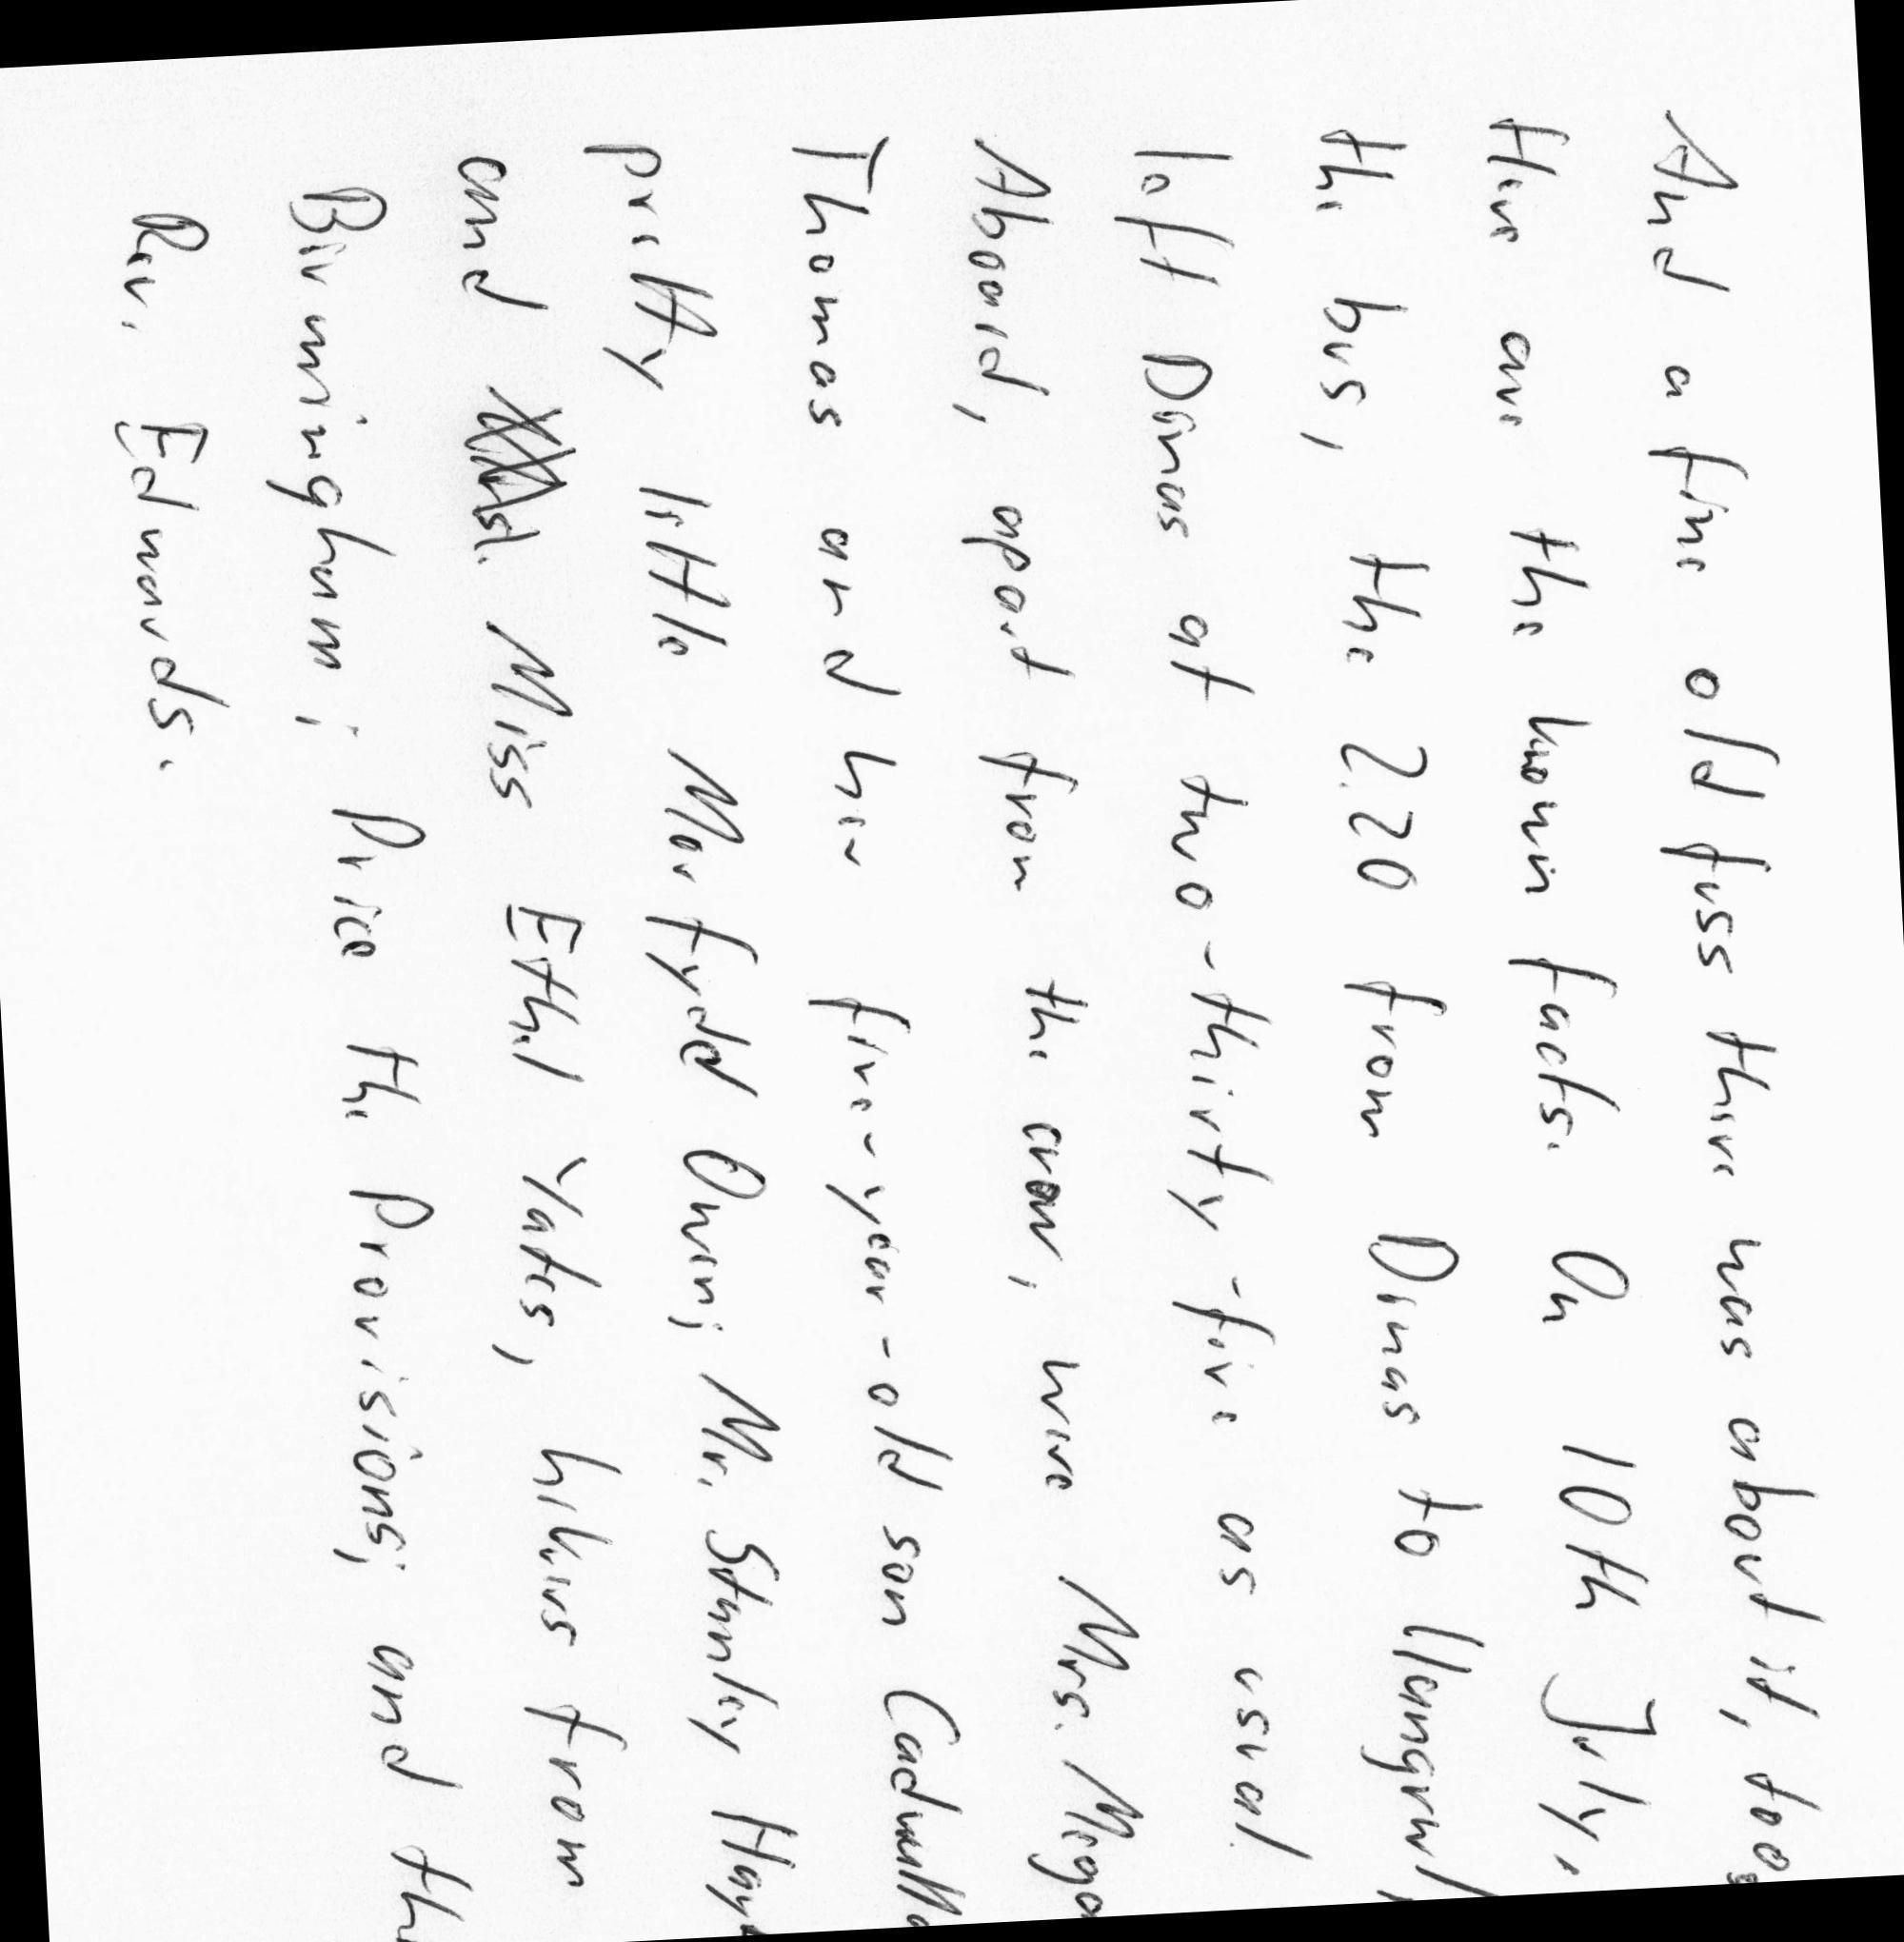 And a fine old fuss there was about it, too.
Here are the known facts. On 10th July,
the bus, the 2.20 from Dinas to Llangrwl,
left Dinas at two-thirty-five as usual.
Aboard, apart from the crew, were Mrs. Mega
Thomas and her five-year-old son Cadwalla
pretty little Morfydd Owen; Mr. Stanley Hay
and Miss Ethel Yates, hikers from
Birmingham; Price the Provisions; and the
Rev. Edwards.